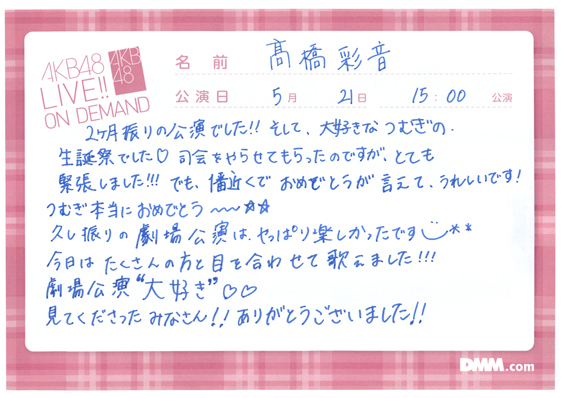 AKB48
LIVE!!
ON DEMAND
AKB
48
名前 髙橋彩音
公演日 5月 21日 15:00 公演
2ヶ月振りの公演でした!! そして、大好きなつむぎの
生誕祭でした♡ 司会をやらせてもらったのですが、とても
緊張しました!!! でも、1番近くで おめでとうが言えて、うれしいです!
つむぎ本当におめでとう〜〜☆☆
久し振りの劇場公演は、やっぱり楽しかったです
今日はたくさんの方と目を合わせて歌えました!!!
劇場公演“大好き”♡♡
見てくださったみなさん!! ありがとうございました!!
DMM.com